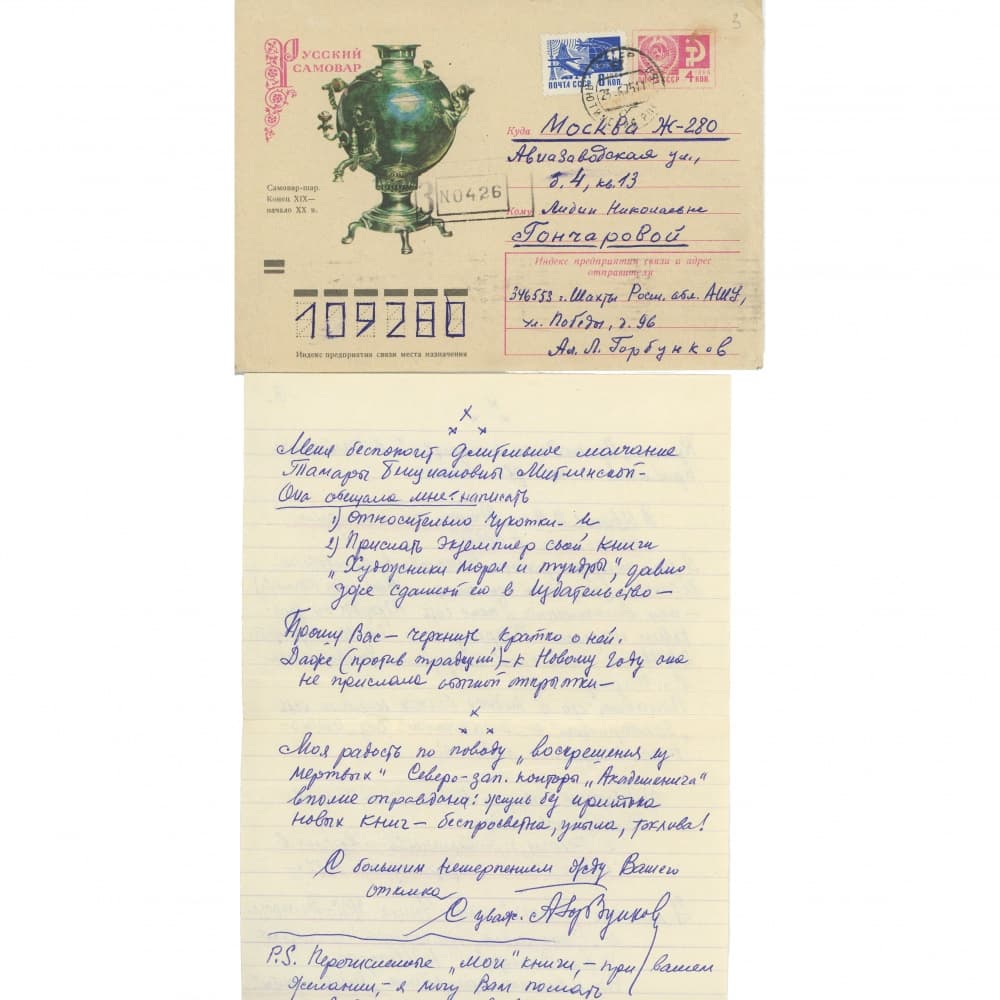 3
РУССКИЙ
САМОВАР
Самовар-шар.
Конец XIX—
начало XX в.
ПОЧТА СССР 6 КОП.
4 КОП.
N0426
Куда Москва Ж-280
Авиазаводская ул.,
д. 4, кв. 13
Кому Лидии Николаевне
Гончаровой
Индекс предприятия связи и адрес
отправителя
346553 г. Шахты Рост. обл. АЮТА,
ул. Победы, 96
Ал. Л. Горбунков
109280
Индекс предприятия связи места назначения
х
х х
Меня беспокоит длительное молчание
Тамары Митлянской—
Она обещала мне: написать
1) относительно Чукотки— и
2) Прислать экземпляр своей книги
„Художники моря и тундры", давно
уже сданной ею в Издательство—
Прошу Вас— черкните кратко о ней.
Даже (против традиций)— к Новому году она
не прислала обычной открытки—
х
х х
Моя радость по поводу „воскрешения из
мертвых" Северо-зап. конторы „Академкнига"
вполне оправдана: жизнь без притока
новых книг— беспросветна, уныла, тосклива!
С большим нетерпением жду Вашего
отклика
С уваж. АГорбунков
P.S. Перечисленные „мои" книги,— при вашем
желании,— я могу Вам послать